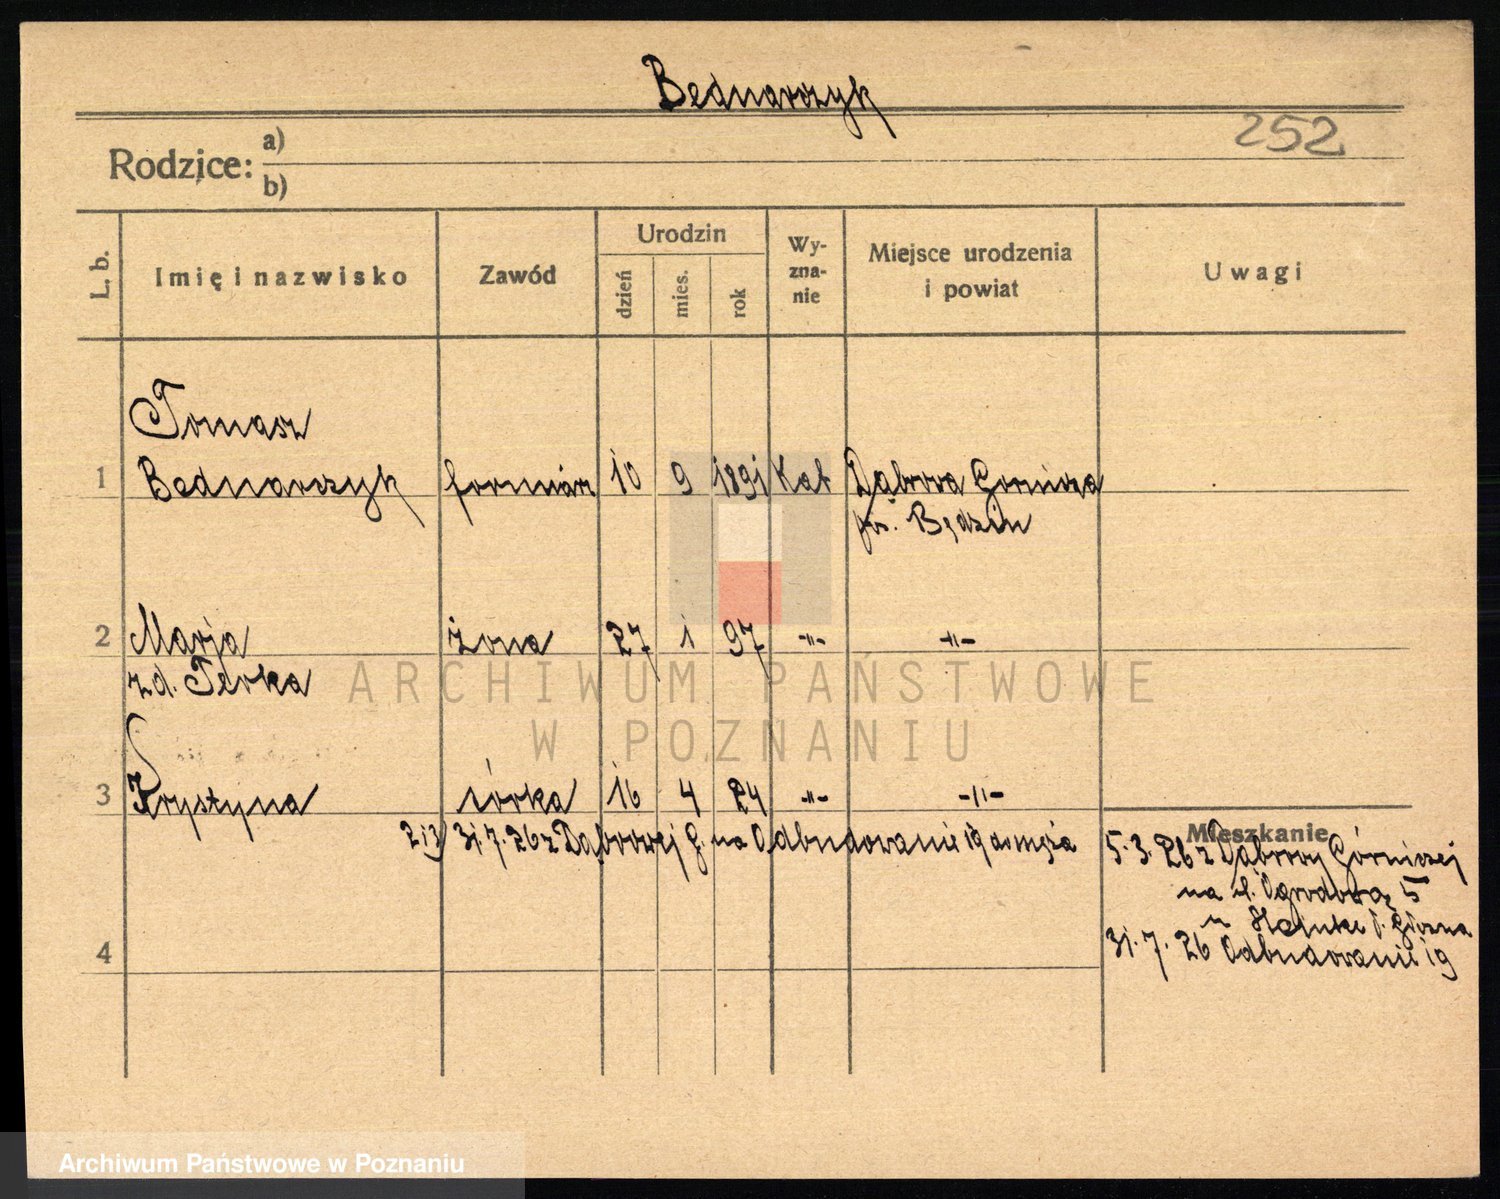 Bednarczyk
252
Rodzice: a)
b)
L. b.
Imię i nazwisko
Zawód
Urodzin
dzień
mies.
rok
Wy-
zna-
nie
Miejsce urodzenia
i powiat
Uwagi
Tomasz
1 Bednarczyk formiarz 10 9 1891 Kat Dąbrowa Górnicza
pow. Będzin
2 Marja żona 27 1 97 -"- -"-
zd.
3 Krystyna córka 16 4 24 -"- -"-
2 i 3) 31.7.26 z Dąbrowej G. na Odbudowanie 19 do męża
Mieszkanie
5.3.26 z Dąbrowy Górniczej
na ul. Ogrodową 5
u
31.7.26 Odbudowanie 19
4
ARCHIWUM PAŃSTWOWE
W POZNANIU
Archiwum Państwowe w Poznaniu